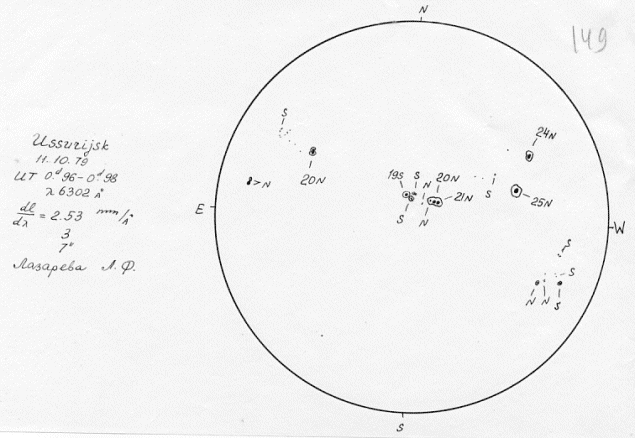 149
N
Ussurijsk
11.10.79
UT 0.ᵈ96-0.ᵈ98
λ 6302 Å
dl/dλ = 2.53 mm/Å
3
7"
Лазарева Л.Ф.
S
24N
20N
>N
19S S N 20N
S
21N
25N
S N
E
W
S
S
N N S
S